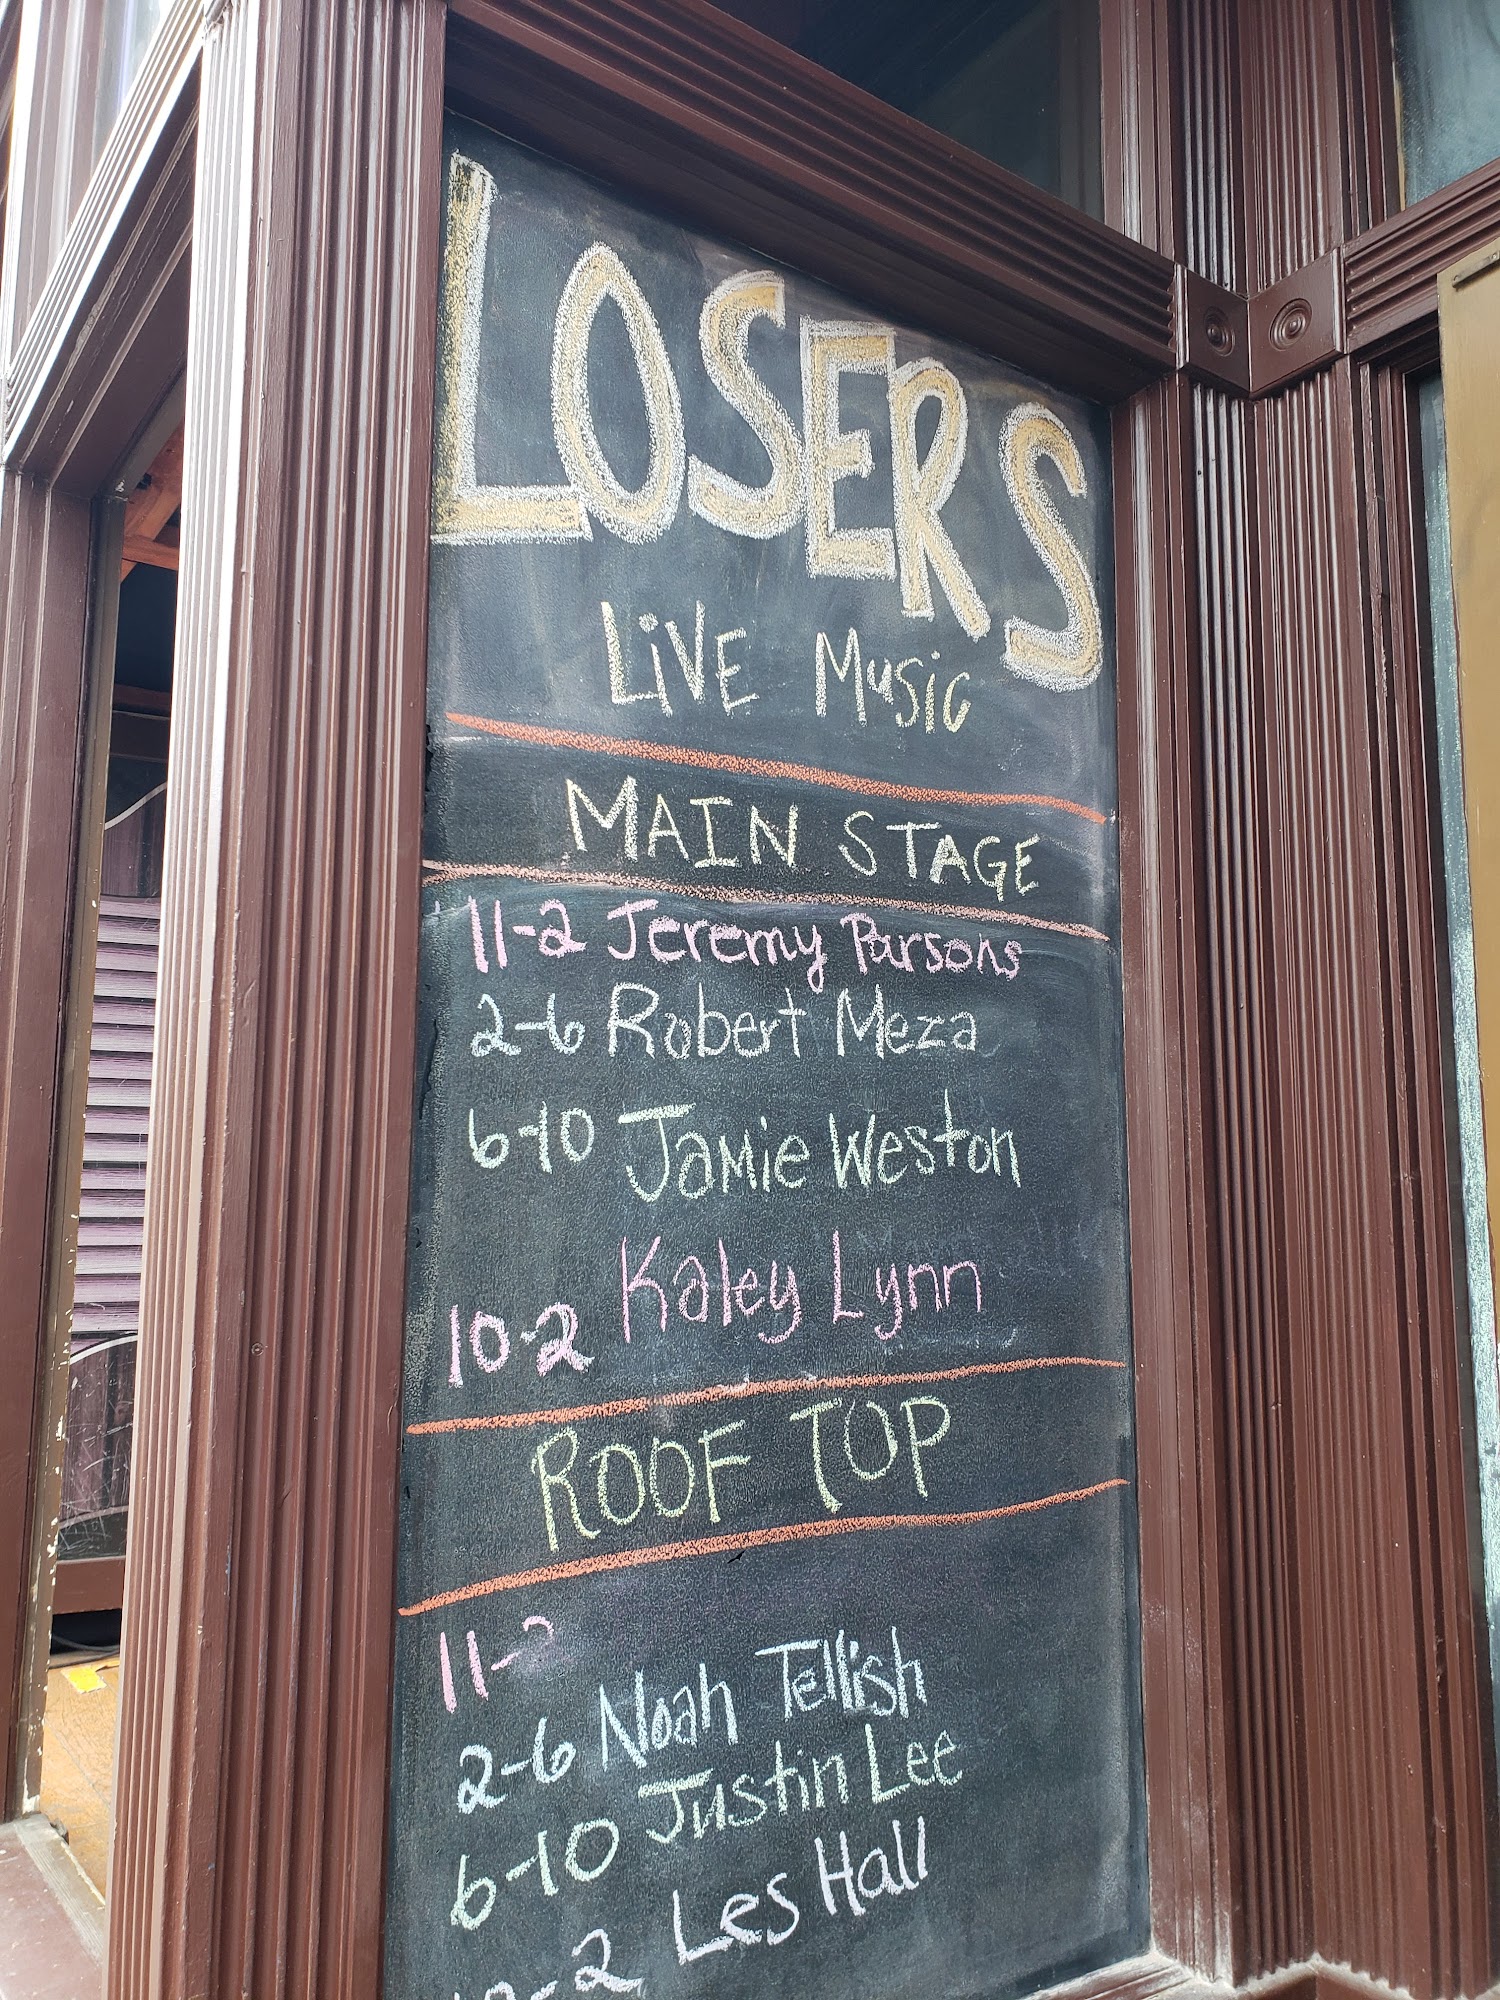 LOSERS
LiVE Music
MAIN STAGE
11-2 Jeremy Parsons
2-6 Robert Meza
6-10 Jamie Weston
10-2 Kaley Lynn
ROOF TOP
11-2
2-6 Noah Tellish
6-10 Justin Lee
10-2 Les Hall